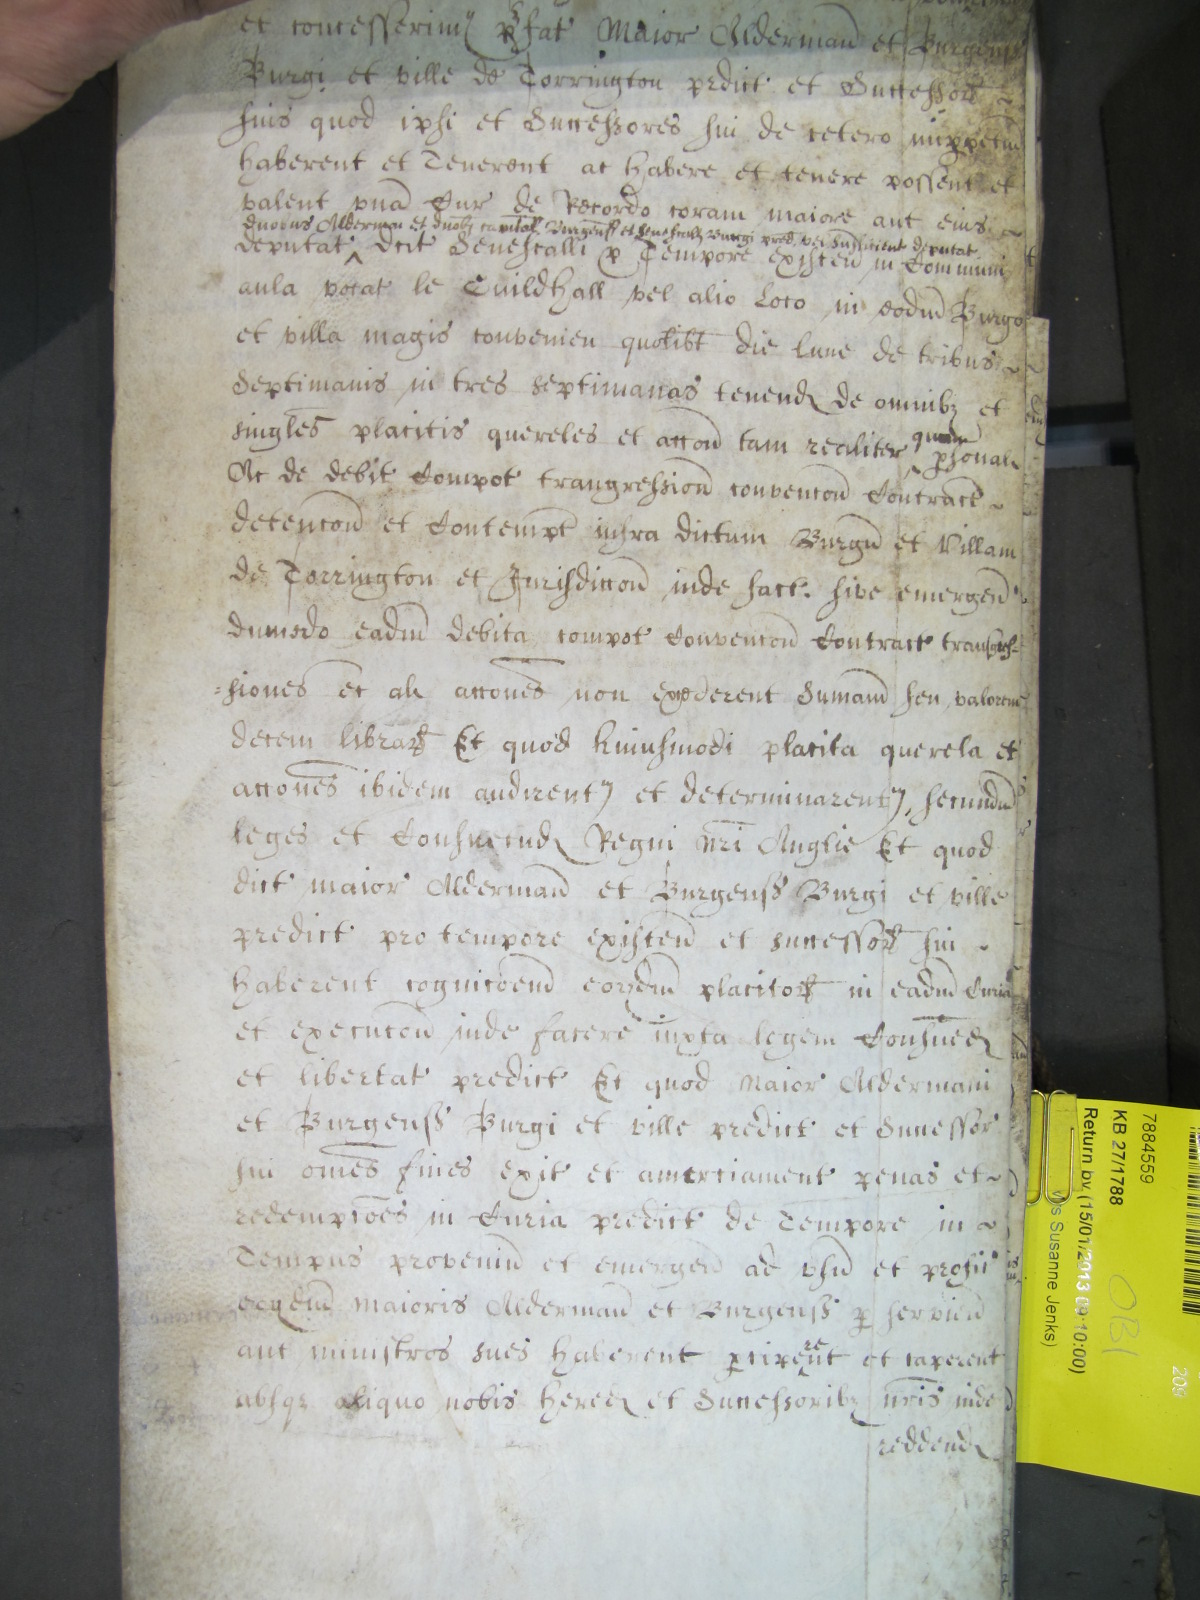 et concesserim9 pfat Maior Alderman et Burgens
Burgi et ville de Torrington predict et Successor
suis quod ipsi et Successores sui de cetero imppetm
haberent et Tenerent ac habere et tenere possent et
valent vna Cur de Recordo coram maiore aut eius
duobus Aldermen et duobz capital Burgenss et Senescallo Burgi pred vel sufficient deputat
deputat ^ dict Senescalli p Tempore existen in Communi
aula vocat le Guildhall vel alio Loco in eodm Burgo
et villa magis convenien quolibt die lune de tribus
Septimanis in tres septimanas tenend de omnibz et
singles placitis quereles et accon tam realiter ^ quam psonal
Ac de debit Compot trangression convencon Contract
detencon et Contempt infra dictum Burgu et Villam
de Torrington et Jurisdiccon inde fact. sive emergen
dumodo eadm debita compot Convencon Contract transgres=
=siones et al accones non excederent Sumam seu valorem
decem librar Et quod huiusmodi placita querela et
accones ibidem audirent9 et determinarent9, secundu
leges et Consuetud Regni nri Anglie Et quod
dict maior Alderman et Burgenss Burgi et ville
predict pro tempore existen et successor sui
haberent cognicoem eordm placitor in eadm Curia
et execucon inde facere iuxta legem Consued
et libertat predict Et quod Maior Aldermani
et Burgenss Burgi et ville predict et Successor
sui omes fines exit et amerciament penas et
redempcoes in Curia predict de Tempore in
Tempus provenien et emergen ad usu et profic
eordem Maioris Alderman et Burgenss p servien
aut ministros suos haberent pciperent et caperent
absqz aliquo nobis hered et Successoribz nris inde
reddend
7884559
KB 27/1788
Return by (15/01/2013 09:10:00)
s Susanne Jenks)
OBI
209